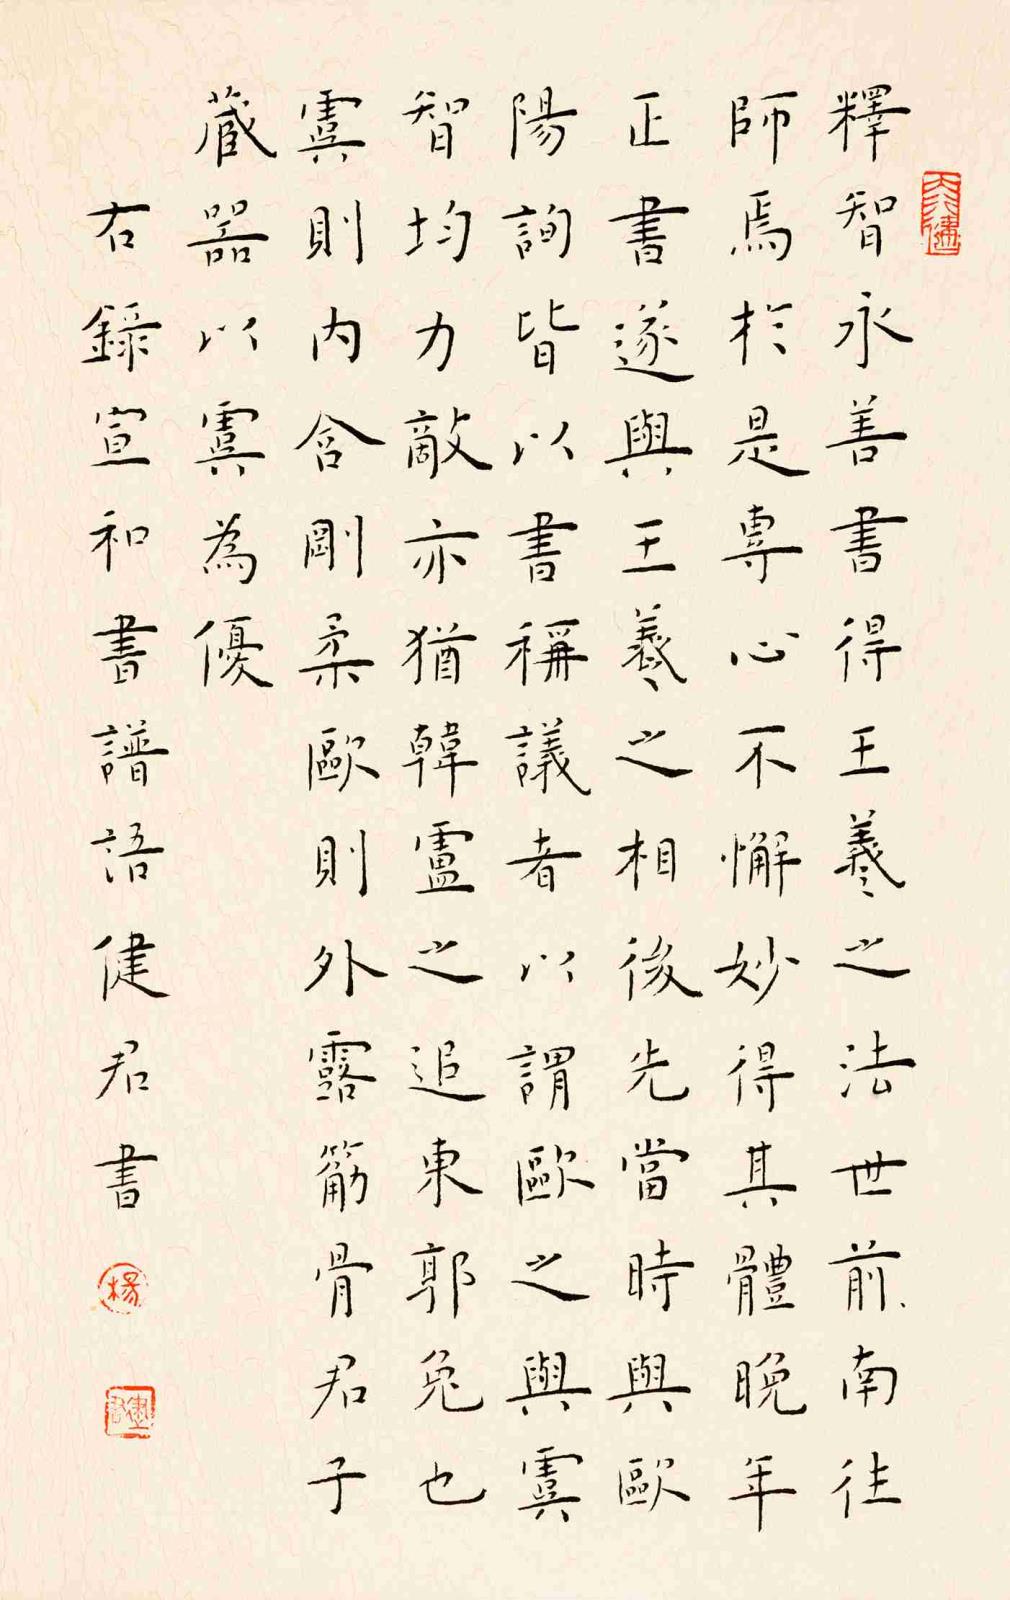 天行健
釋智永善書得王羲之法世前南往
師焉於是專心不懈妙得其體晚年
正書遂與王羲之相後先當時與歐
陽詢皆以書稱議者以謂歐之與虞
智均力敵亦猶韓盧之追東郭兔也
虞則內含剛柔歐則外露筋骨君子
藏器以虞為優
右錄宣和書譜語健君書
楊
健君